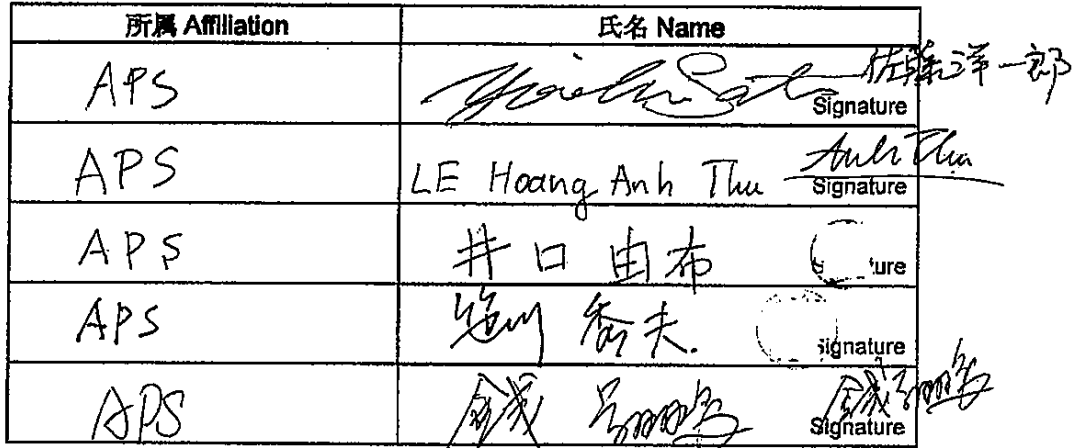 所属 Affiliation 氏名 Name
APS Yoichiro Sato 佐藤洋一郎 Signature
APS LE Hoang Anh Thu Anh Thu Signature
APS 井口 由布 ture
APS 笹川 秀夫 Signature
APS Signature